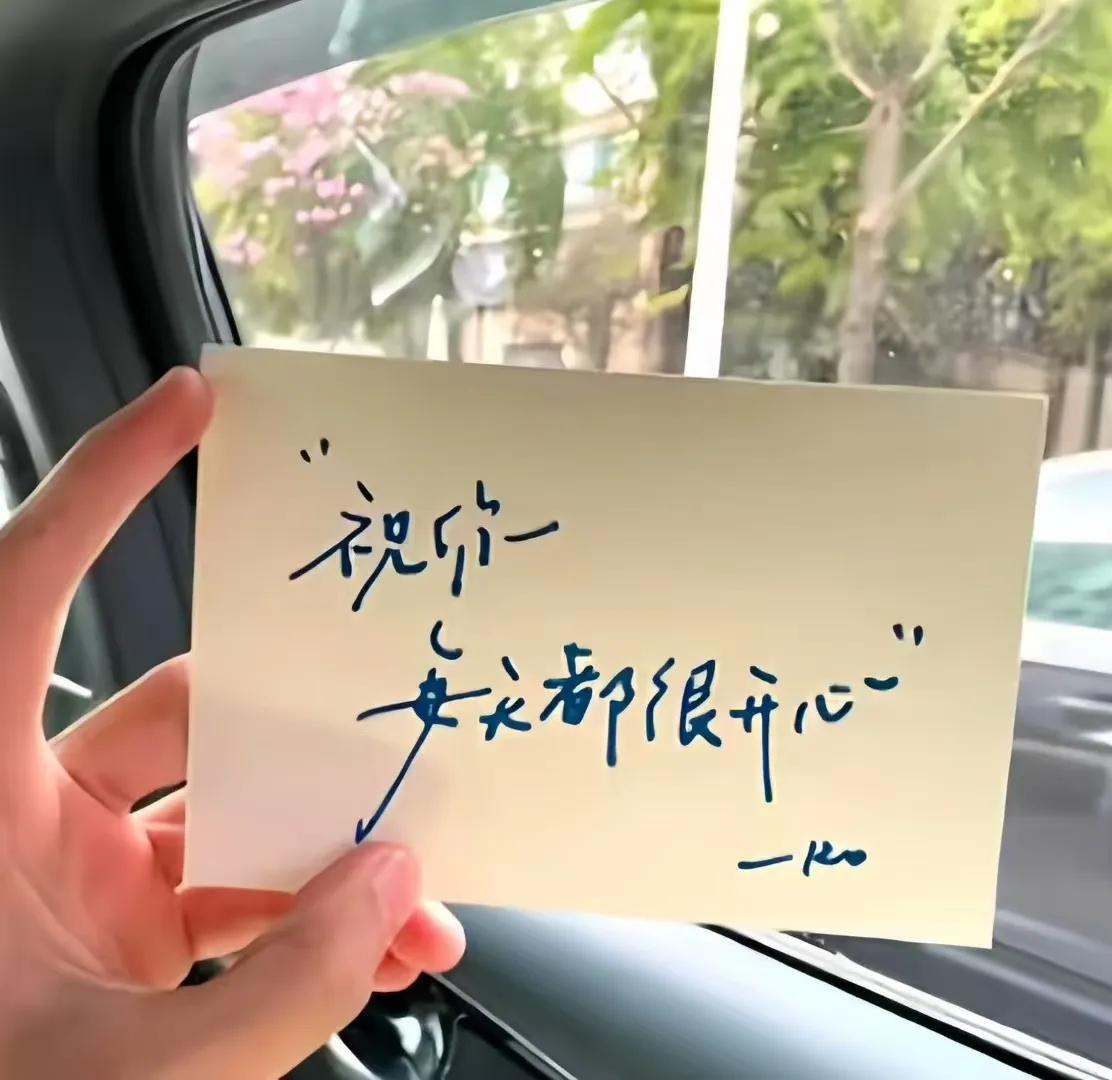 "祝你
每天都很开心"
—Ko